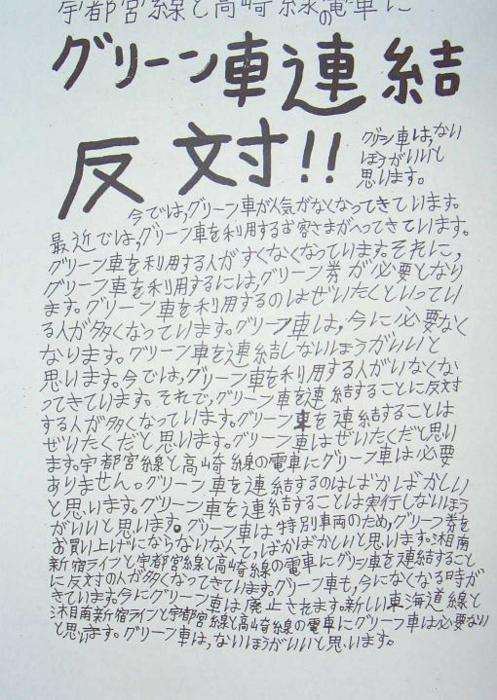 宇都宮線と高崎線の電車に
グリーン車連結
反対!!
グリーン車は,ない
ほうがいいと
思います。
今では,グリーン車が人気がなくなってきています。
最近では,グリーン車を利用するお客さまがへってきています。
グリーン車を利用する人がすくなくなっています。それに,
グリーン車を利用するには,グリーン券が必要となり
ます。グリーン車を利用するのはぜいたくといってい
る人が多くなっています。グリーン車は,今に必要なく
なります。グリーン車を連結しないほうがいいと
思います。今では,グリーン車を利用する人がいなくな
ってきています。それで,グリーン車を連結することに反対
する人が多くなっています。グリーン車を連結することは
ぜいたくだと思います。グリーン車はぜいたくだと思い
ます。宇都宮線と高崎線の電車にグリーン車は必要
ありません。グリーン車を連結するのはばかばかしい
と思います。グリーン車を連結することは実行しないほう
がいいと思います。グリーン車は特別車両のため,グリーン券を
お買い上げにならないなんて,ばかばかしいと思います。湘南
新宿ライと宇都宮線と高崎線の電車にグリーン車を連結すること
に反対の人が多くなってきています。グリーン車も,今になくなる時が
きています。今にグリーン車は廃止されます。新しい東海道線と
湘南新宿ラインと宇都宮線と高崎線の電車にグリーン車は必要ない
と思います。グリーン車は,ないほうがいいと思います。